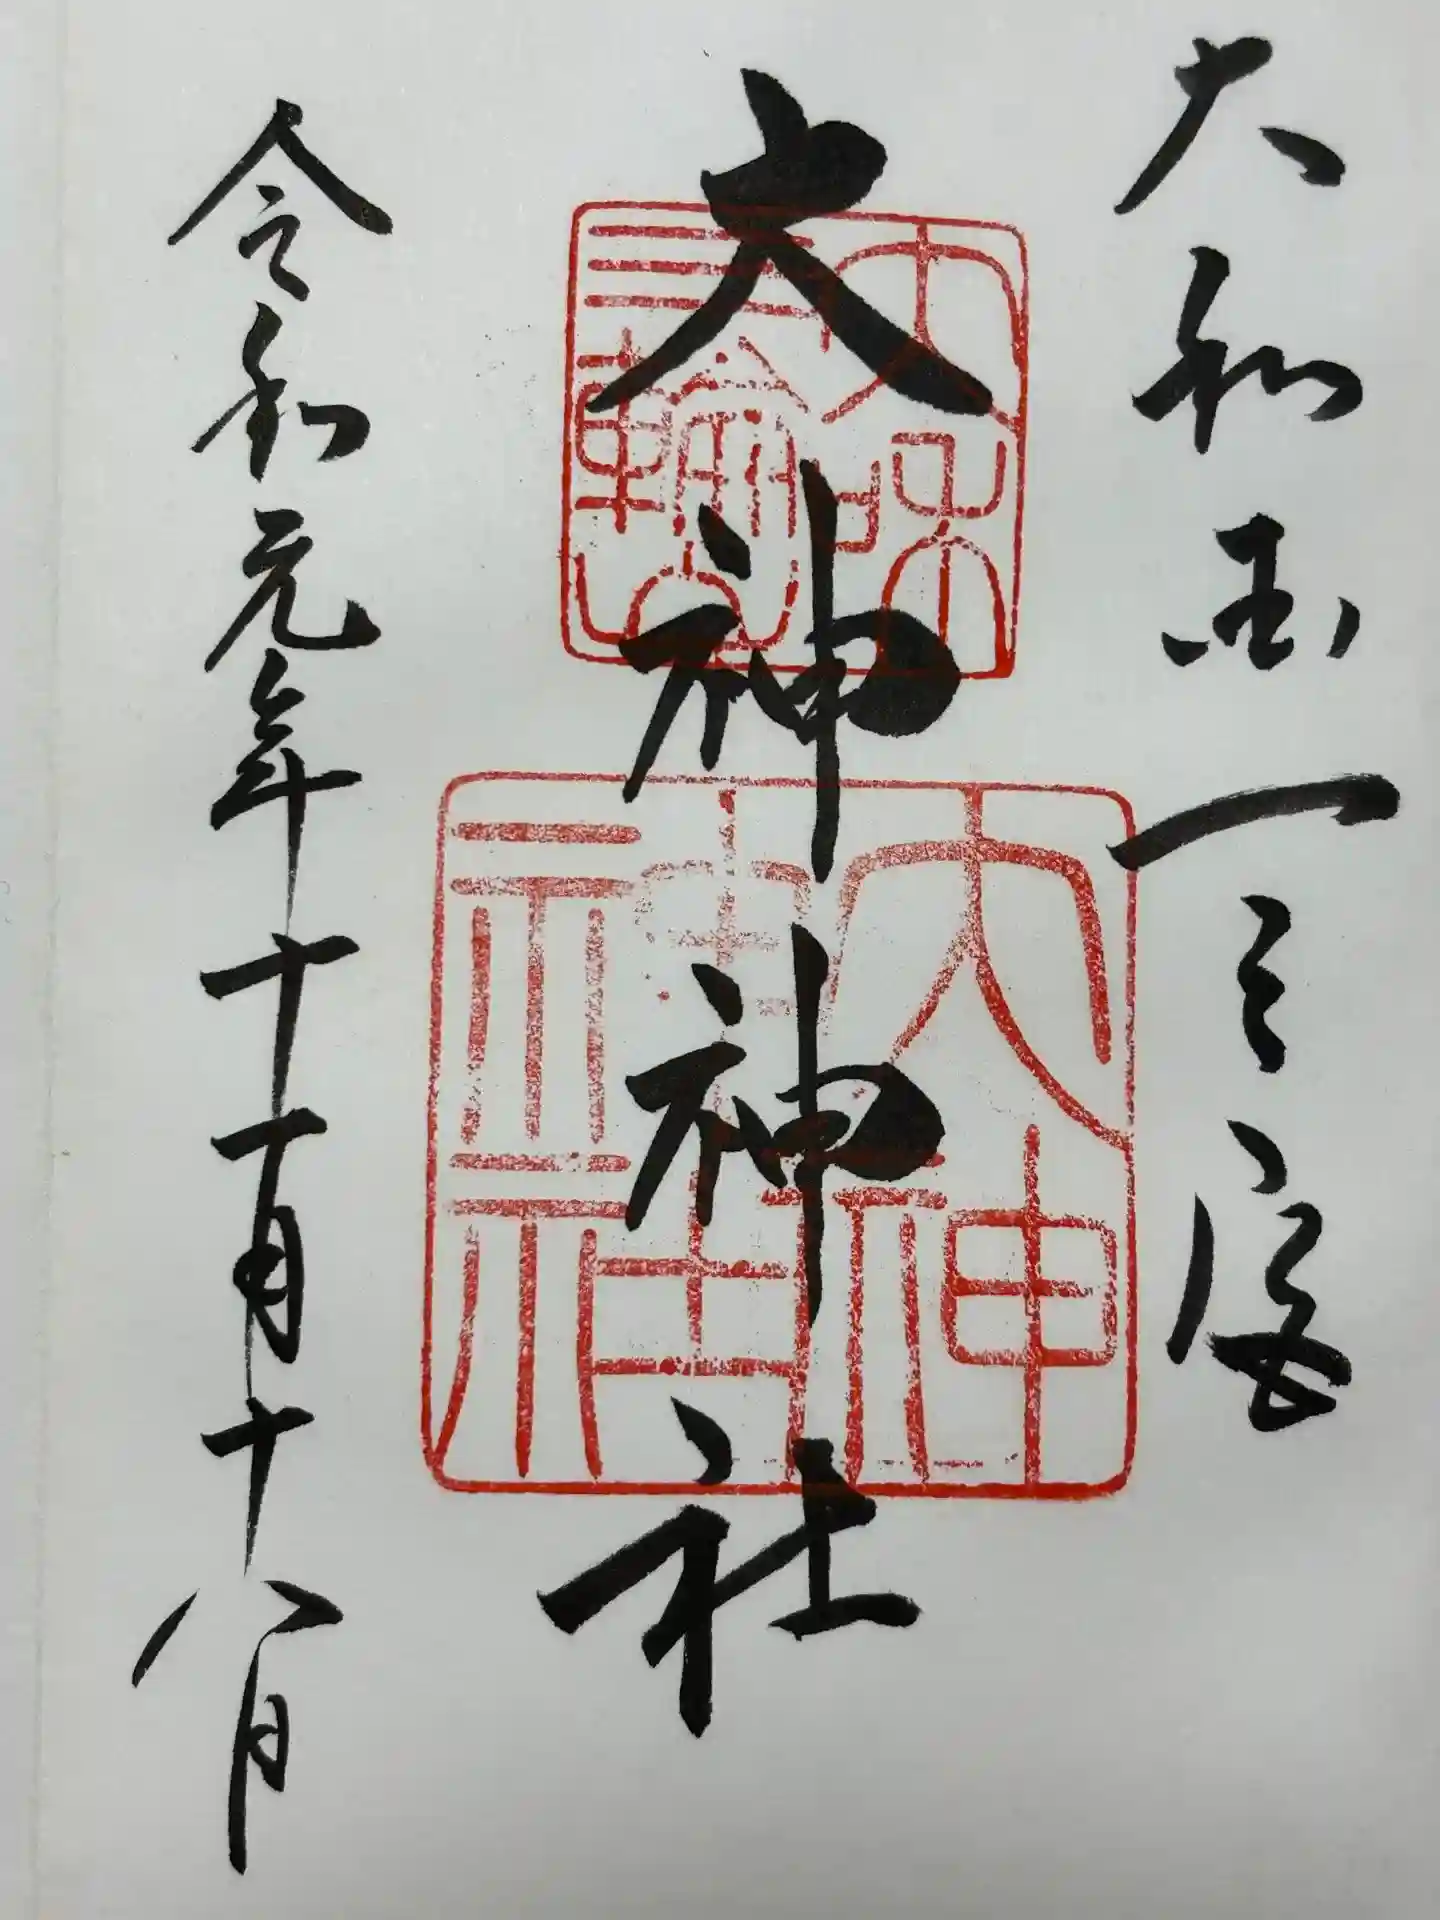 大和国一之宮
大神神社
令和元年十一月十八日
大和
三輪山
大神
神社